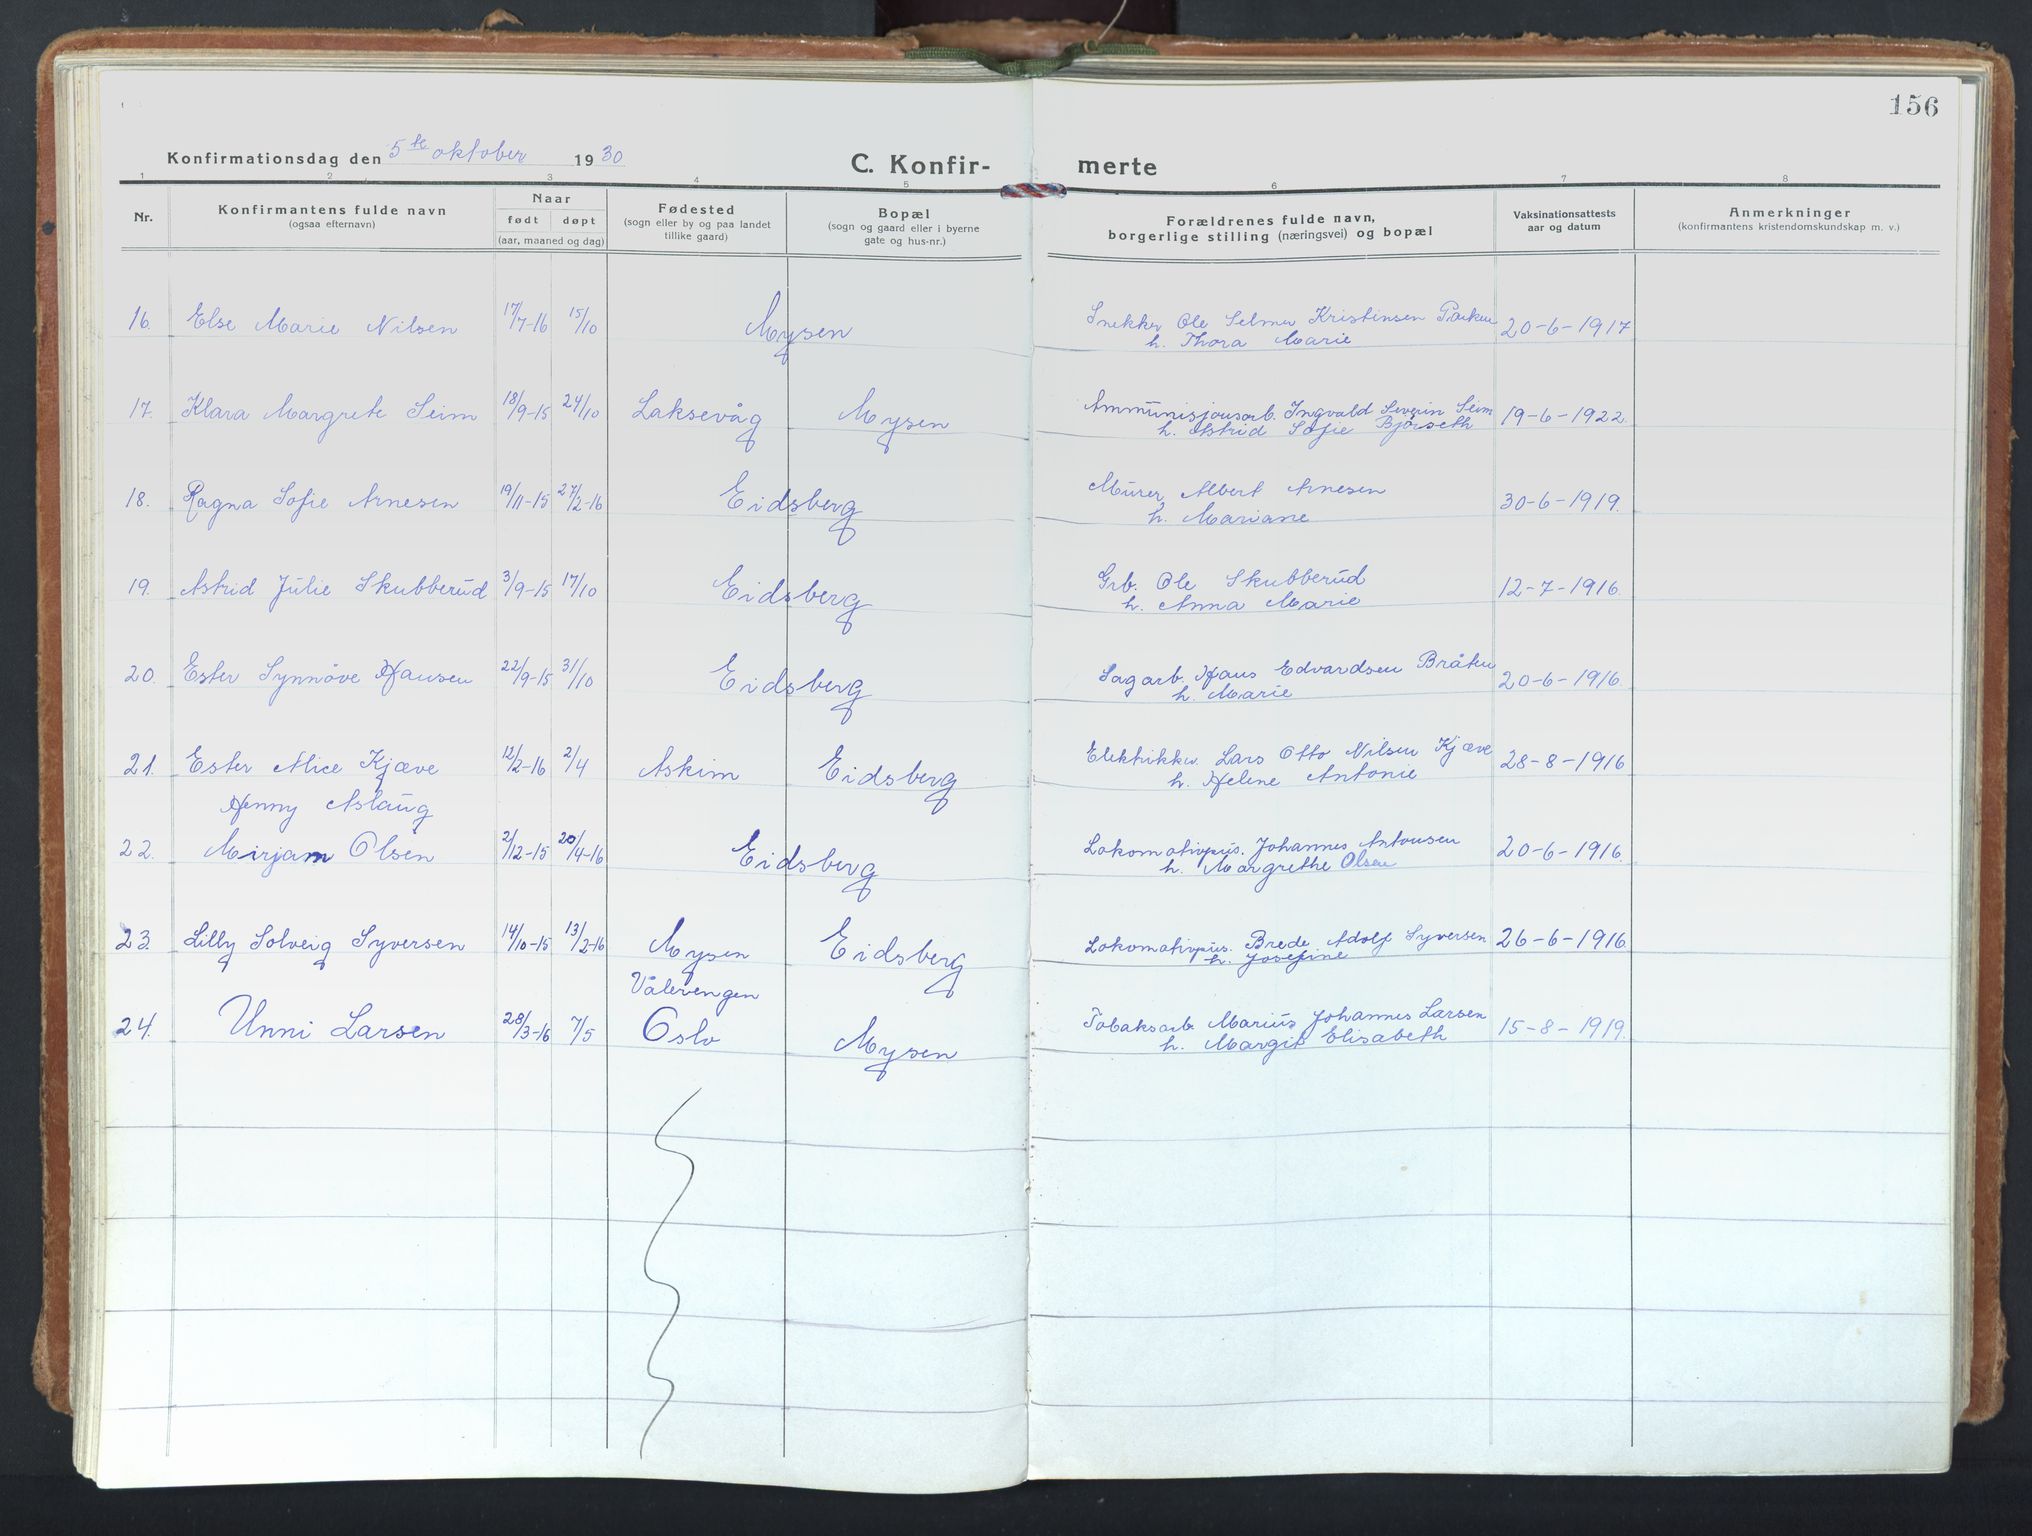 156
Konfirmationsdag den 5te oktober 1930
C. Konfir- merte
1 2 3 4 5 6 7 8
Nr.
Konfirmantens fulde navn
(ogsaa efternavn)
Naar
født døpt
(aar, maaned og dag)
Fødested
(sogn eller by og paa landet
tillike gaard)
Bopæl
(sogn og gaard eller i byerne
gate og hus-nr.)
Forældrenes fulde navn,
borgerlige stilling (næringsvei) og bopæl
Vaksinationsattests
aar og datum
Anmerkninger
(konfirmantens kristendomskundskap m. v.)
16. Else Marie Nilsen 17/7-16 15/10 Mysen Snekker Ole Selmer Kristinsen 20-6-1917
h. Thora Marie
17. Klara Margrete Seim 18/9-15 24/10 Laksevåg Mysen Ammunisjonsarb. Ingvald Severin Seim 19-6-1922.
h. Astrid Sofie Bjørseth
18. Ragna Sofie Arnesen 19/11-15 27/2-16 Eidsberg Murer Albert Arnesen 30-6-1919.
h. Mariane
19. Astrid Julie Skubberud 3/9-15 17/10 Eidsberg Grb. Ole Skubberud 12-7-1916.
h. Anna Marie
20. Ester Synnöve Hansen 22/9-15 31/10 Eidsberg Sagarb. Hans Edvardsen Bråten 20-6-1916.
h. Marie
21. Ester Alice Kjæve 12/2-16 2/4 Askim Eidsberg Elektriker Lars Otto Nilsen Kjæve 28-8-1916
h. Helene Antonie
Henny Aslaug
22. Mirjam Olsen 2/12-15 20/4-16 Eidsberg Lokomotivpus. Johannes Antonsen 20-6-1916.
h. Margrethe Olsen
23. Lilly Solveig Syversen 14/10-15 13/2-16 Mysen Eidsberg Lokomotivpus. Brede Adolf Syversen 26-6-1916.
h. Josefine
Vålerengen
24. Unni Larsen 28/3-16 7/5 Oslo Mysen Tobaksarb. Marius Johannes Larsen 15-8-1919.
h. Margit Elisabeth